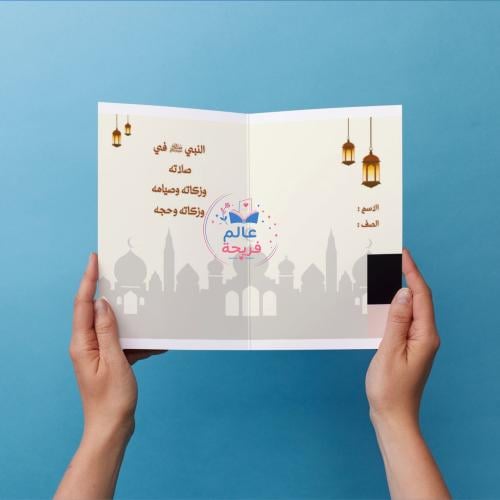 النبي ﷺ في
صلاته
وزكاته وصيامه
وزكاته وحجه
الاسم :
الصف :
عالم
فريحة